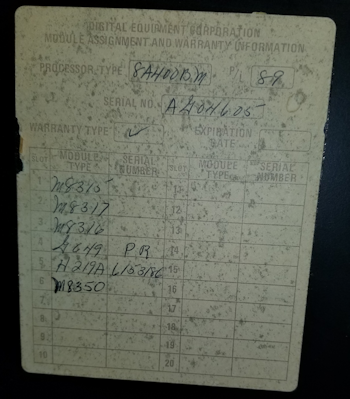 DIGITAL EQUIPMENT CORPORATION
MODULE ASSIGNMENT AND WARRANTY INFORMATION
PROCESSOR-TYPE 8A400BM
SERIAL NO. A404605
WARRANTY TYPE EXPIRATION DATE
MODULE TYPE SERIAL NUMBER SLOT MODULE TYPE SERIAL NUMBER
1 M8315 11
2 M8317 12
3 M8316 13
4 G649 PR 14
5 H219A 15
6 M8350 16
7 17
8 18
9 19
10 20